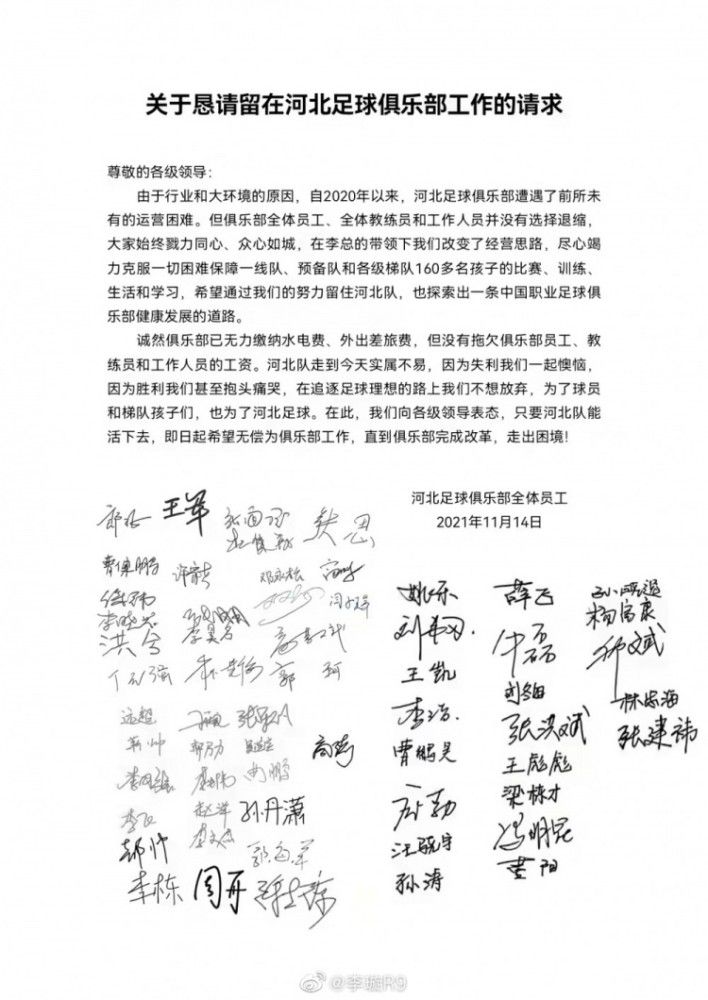 关于恳请留在河北足球俱乐部工作的请求
尊敬的各级领导：
由于行业和大环境的原因，自2020年以来，河北足球俱乐部遭遇了前所未
有的运营困难。但俱乐部全体员工、全体教练员和工作人员并没有选择退缩，
大家始终戮力同心、众心如城，在李总的带领下我们改变了经营思路，尽心竭
力克服一切困难保障一线队、预备队和各级梯队160多名孩子的比赛、训练、
生活和学习，希望通过我们的努力留住河北队，也探索出一条中国职业足球俱
乐部健康发展的道路。
诚然俱乐部已无力缴纳水电费、外出差旅费，但没有拖欠俱乐部员工、教
练员和工作人员的工资。河北队走到今天实属不易，因为失利我们一起懊恼，
因为胜利我们甚至抱头痛哭，在追逐足球理想的路上我们不想放弃，为了球员
和梯队孩子们，也为了河北足球。在此，我们向各级领导表态，只要河北队能
活下去，即日起希望无偿为俱乐部工作，直到俱乐部完成改革，走出困境！
河北足球俱乐部全体员工
2021年11月14日
王军
姚乐
薛飞
杨富康
王凯
李浩
张洪斌
林忠海
曹鹏昊
张建祎
王彪彪
梁栋才
汪晓宇
冯明昆
孙涛
黄阳
远超
高嵩
孙丹潇
郝帅
李栋
周开
郭珂
@李璇R9